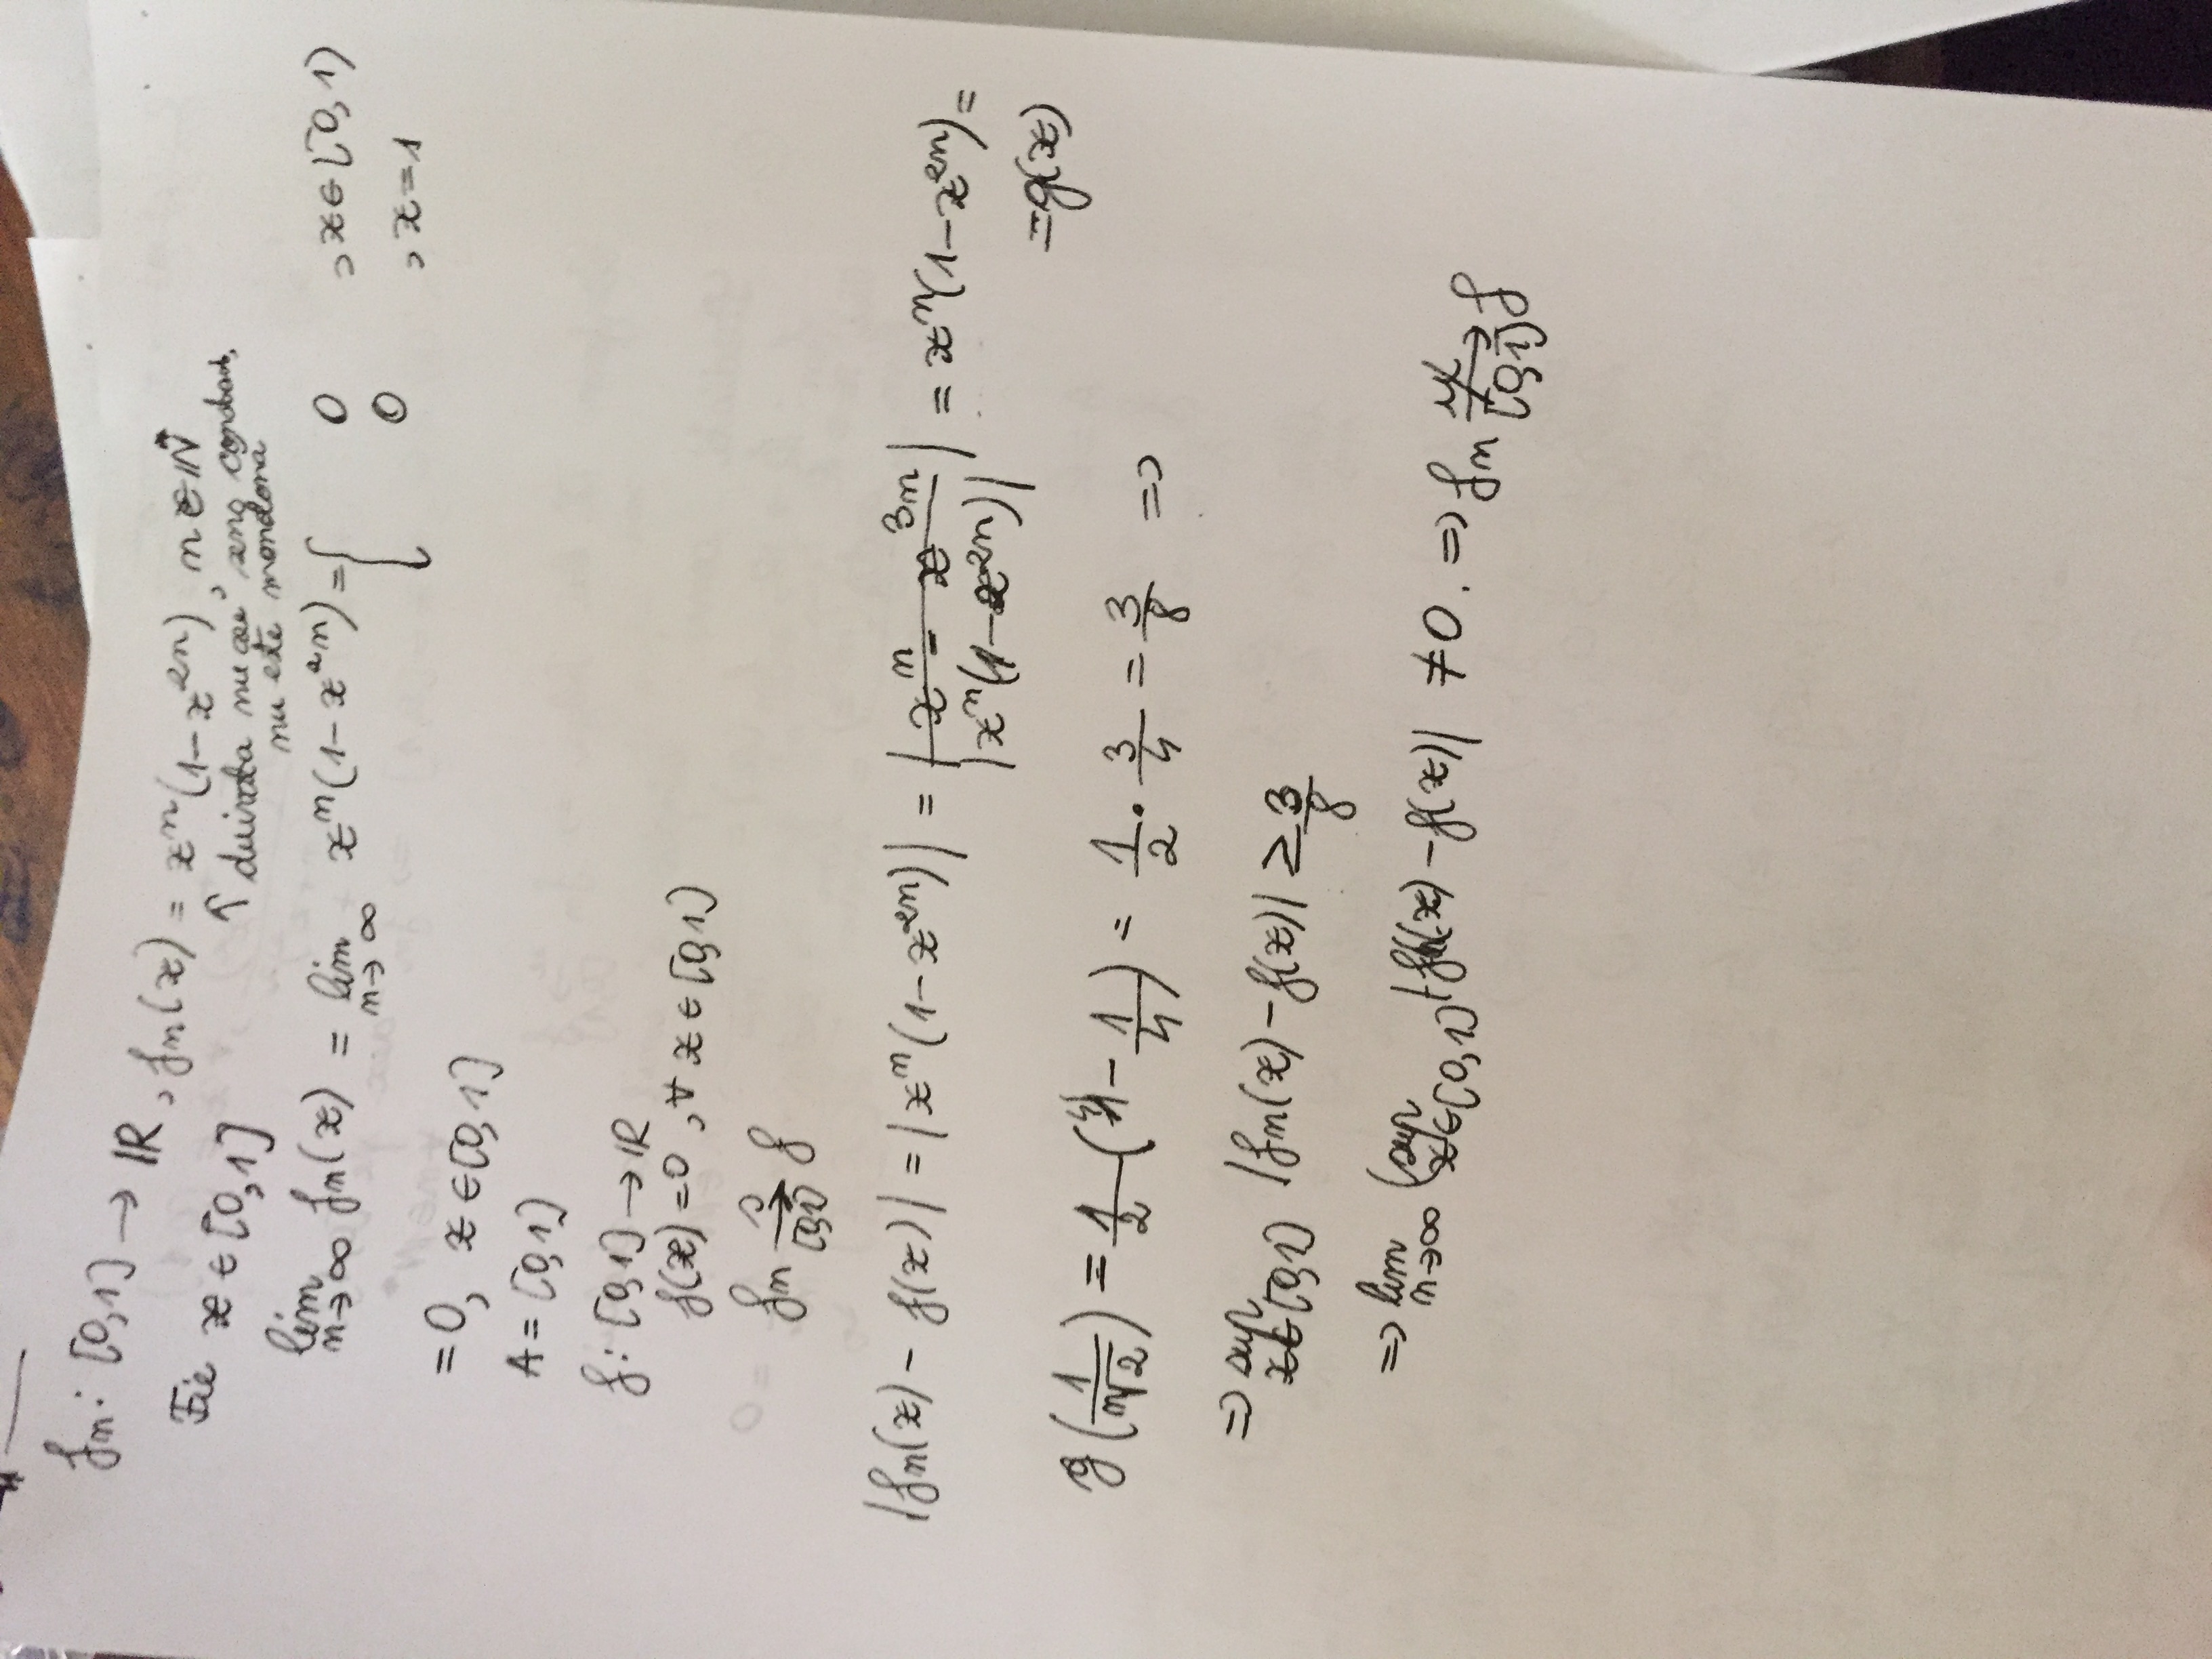 fn: [0,1] → ℝ, fn(x) = xⁿ(1-x²ⁿ), n ∈ ℕ*
Fie x ∈ [0,1]
↑ derivata nu are semn constant,
nu este monotonă
lim n→∞ fn(x) = lim n→∞ xⁿ(1-x²ⁿ) = { 0 , x ∈ [0,1)
0 , x = 1
= 0, x ∈ [0,1]
A = [0,1]
f: [0,1] → ℝ
f(x) = 0, ∀ x ∈ [0,1]
fn —s→ [0,1] f
|fn(x) - f(x)| = |xⁿ(1-x²ⁿ)| = |xⁿ - x³ⁿ| = xⁿ(1-x²ⁿ) =
|xⁿ(1-x²ⁿ)|
= g(x)
g(1/ⁿ√2) = 1/2 (1 - 1/4) = 1/2 · 3/4 = 3/8 =>
=> sup x∈[0,1] |fn(x) - f(x)| ≥ 3/8
=> lim n→∞ (sup x∈[0,1] |fn(x) - f(x)| ≠ 0. => fn —u̸→ [0,1] f